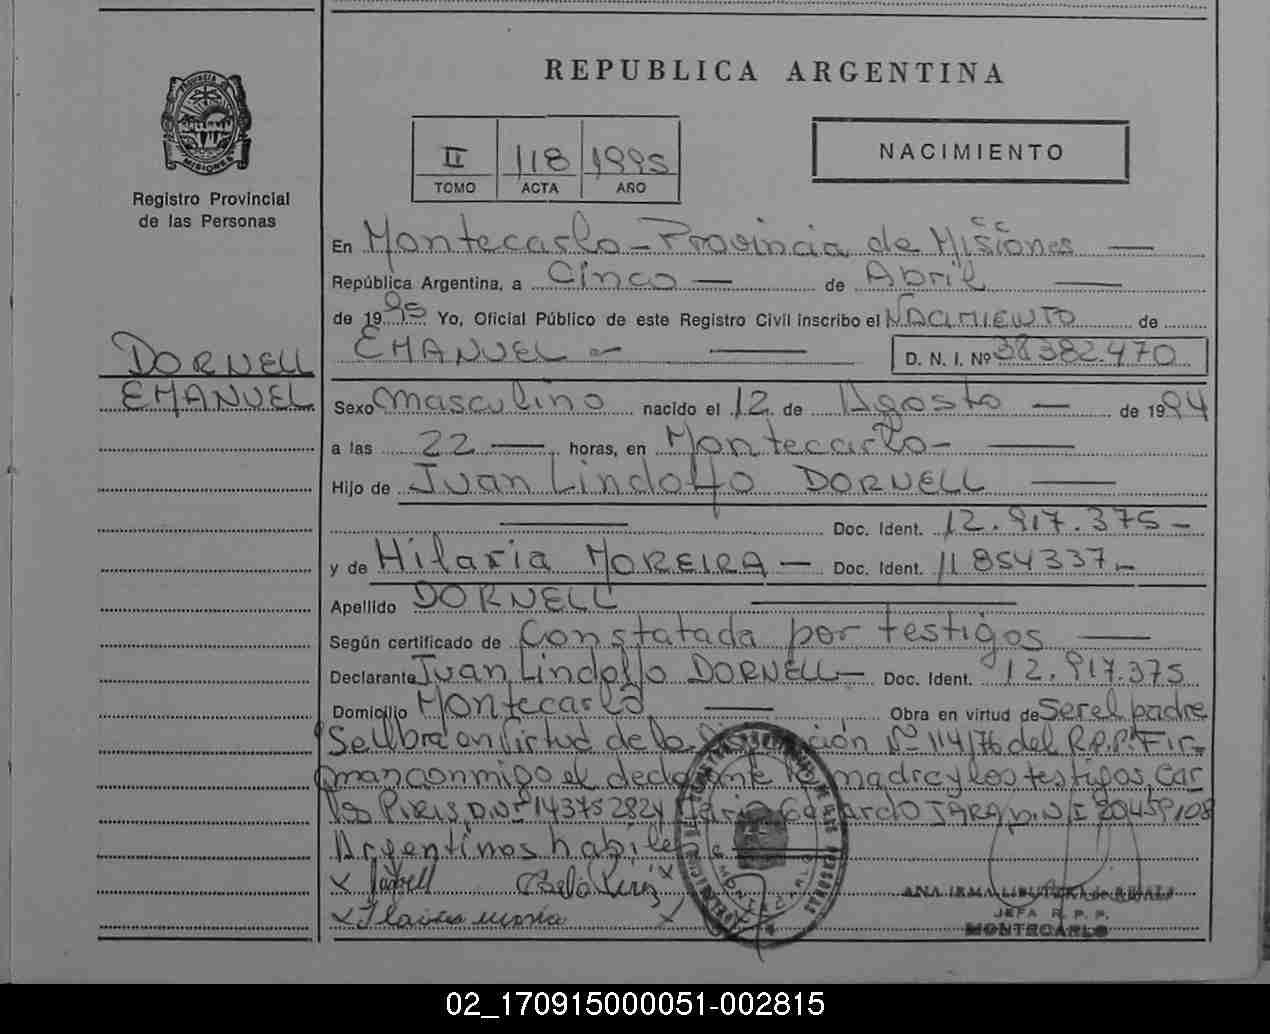 REPUBLICA ARGENTINA
PROVINCIA DE MISIONES
Registro Provincial
de las Personas
II 118 1995
TOMO ACTA AÑO
NACIMIENTO
En Montecarlo - Provincia de Misiones
República Argentina, a Cinco — de Abril —
de 1995 Yo, Oficial Público de este Registro Civil inscribo el NACIMIENTO de
DORNELL
EMANUEL
EMANUEL — — D. N. I. Nº 38382.470
Sexo Masculino nacido el 12 de Agosto — de 1994
a las 22 — horas, en Montecarlo- —
Hijo de Juan Lindolfo DORNELL —
— Doc. Ident. 12.917.375-
y de Hilaria MOREIRA — Doc. Ident. 11854337-
Apellido DORNELL —
Según certificado de Constatada por testigos —
Declarante Juan Lindolfo DORNELL — Doc. Ident. 12.917.375
Domicilio Montecarlo — Obra en virtud de Ser el padre
Se libra en virtud de la Nº 114/76 del R.P.P. Fir-
man conmigo el declarante la madre y los testigos, Car
los PIRIS D.N 14375282 y Gerardo JARA D.N.I 20459108
Argentinos habiles
JEFA R. P. P.
MONTECARLO
02_170915000051-002815